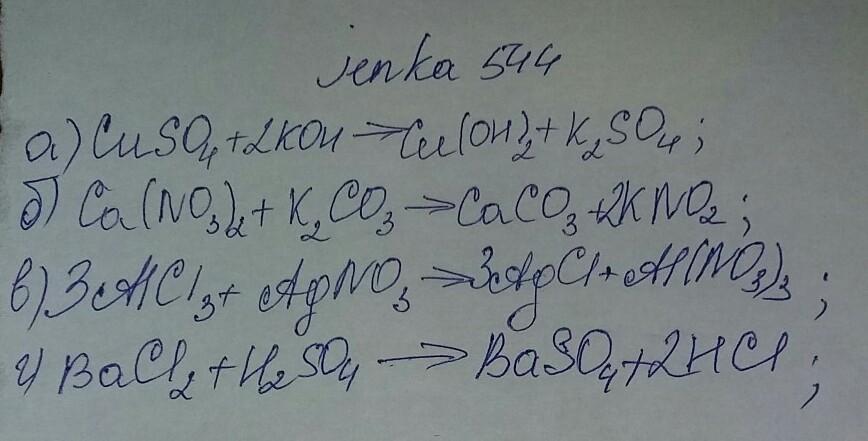 jenka 544
а) CuSO₄ + 2KOH → Cu(OH)₂ + K₂SO₄;
б) Ca(NO₃)₂ + K₂CO₃ → CaCO₃ + 2KNO₂;
в) 3AlCl₃ + AgNO₃ → 3AgCl + Al(NO₃)₃;
г) BaCl₂ + H₂SO₄ → BaSO₄ + 2HCl;